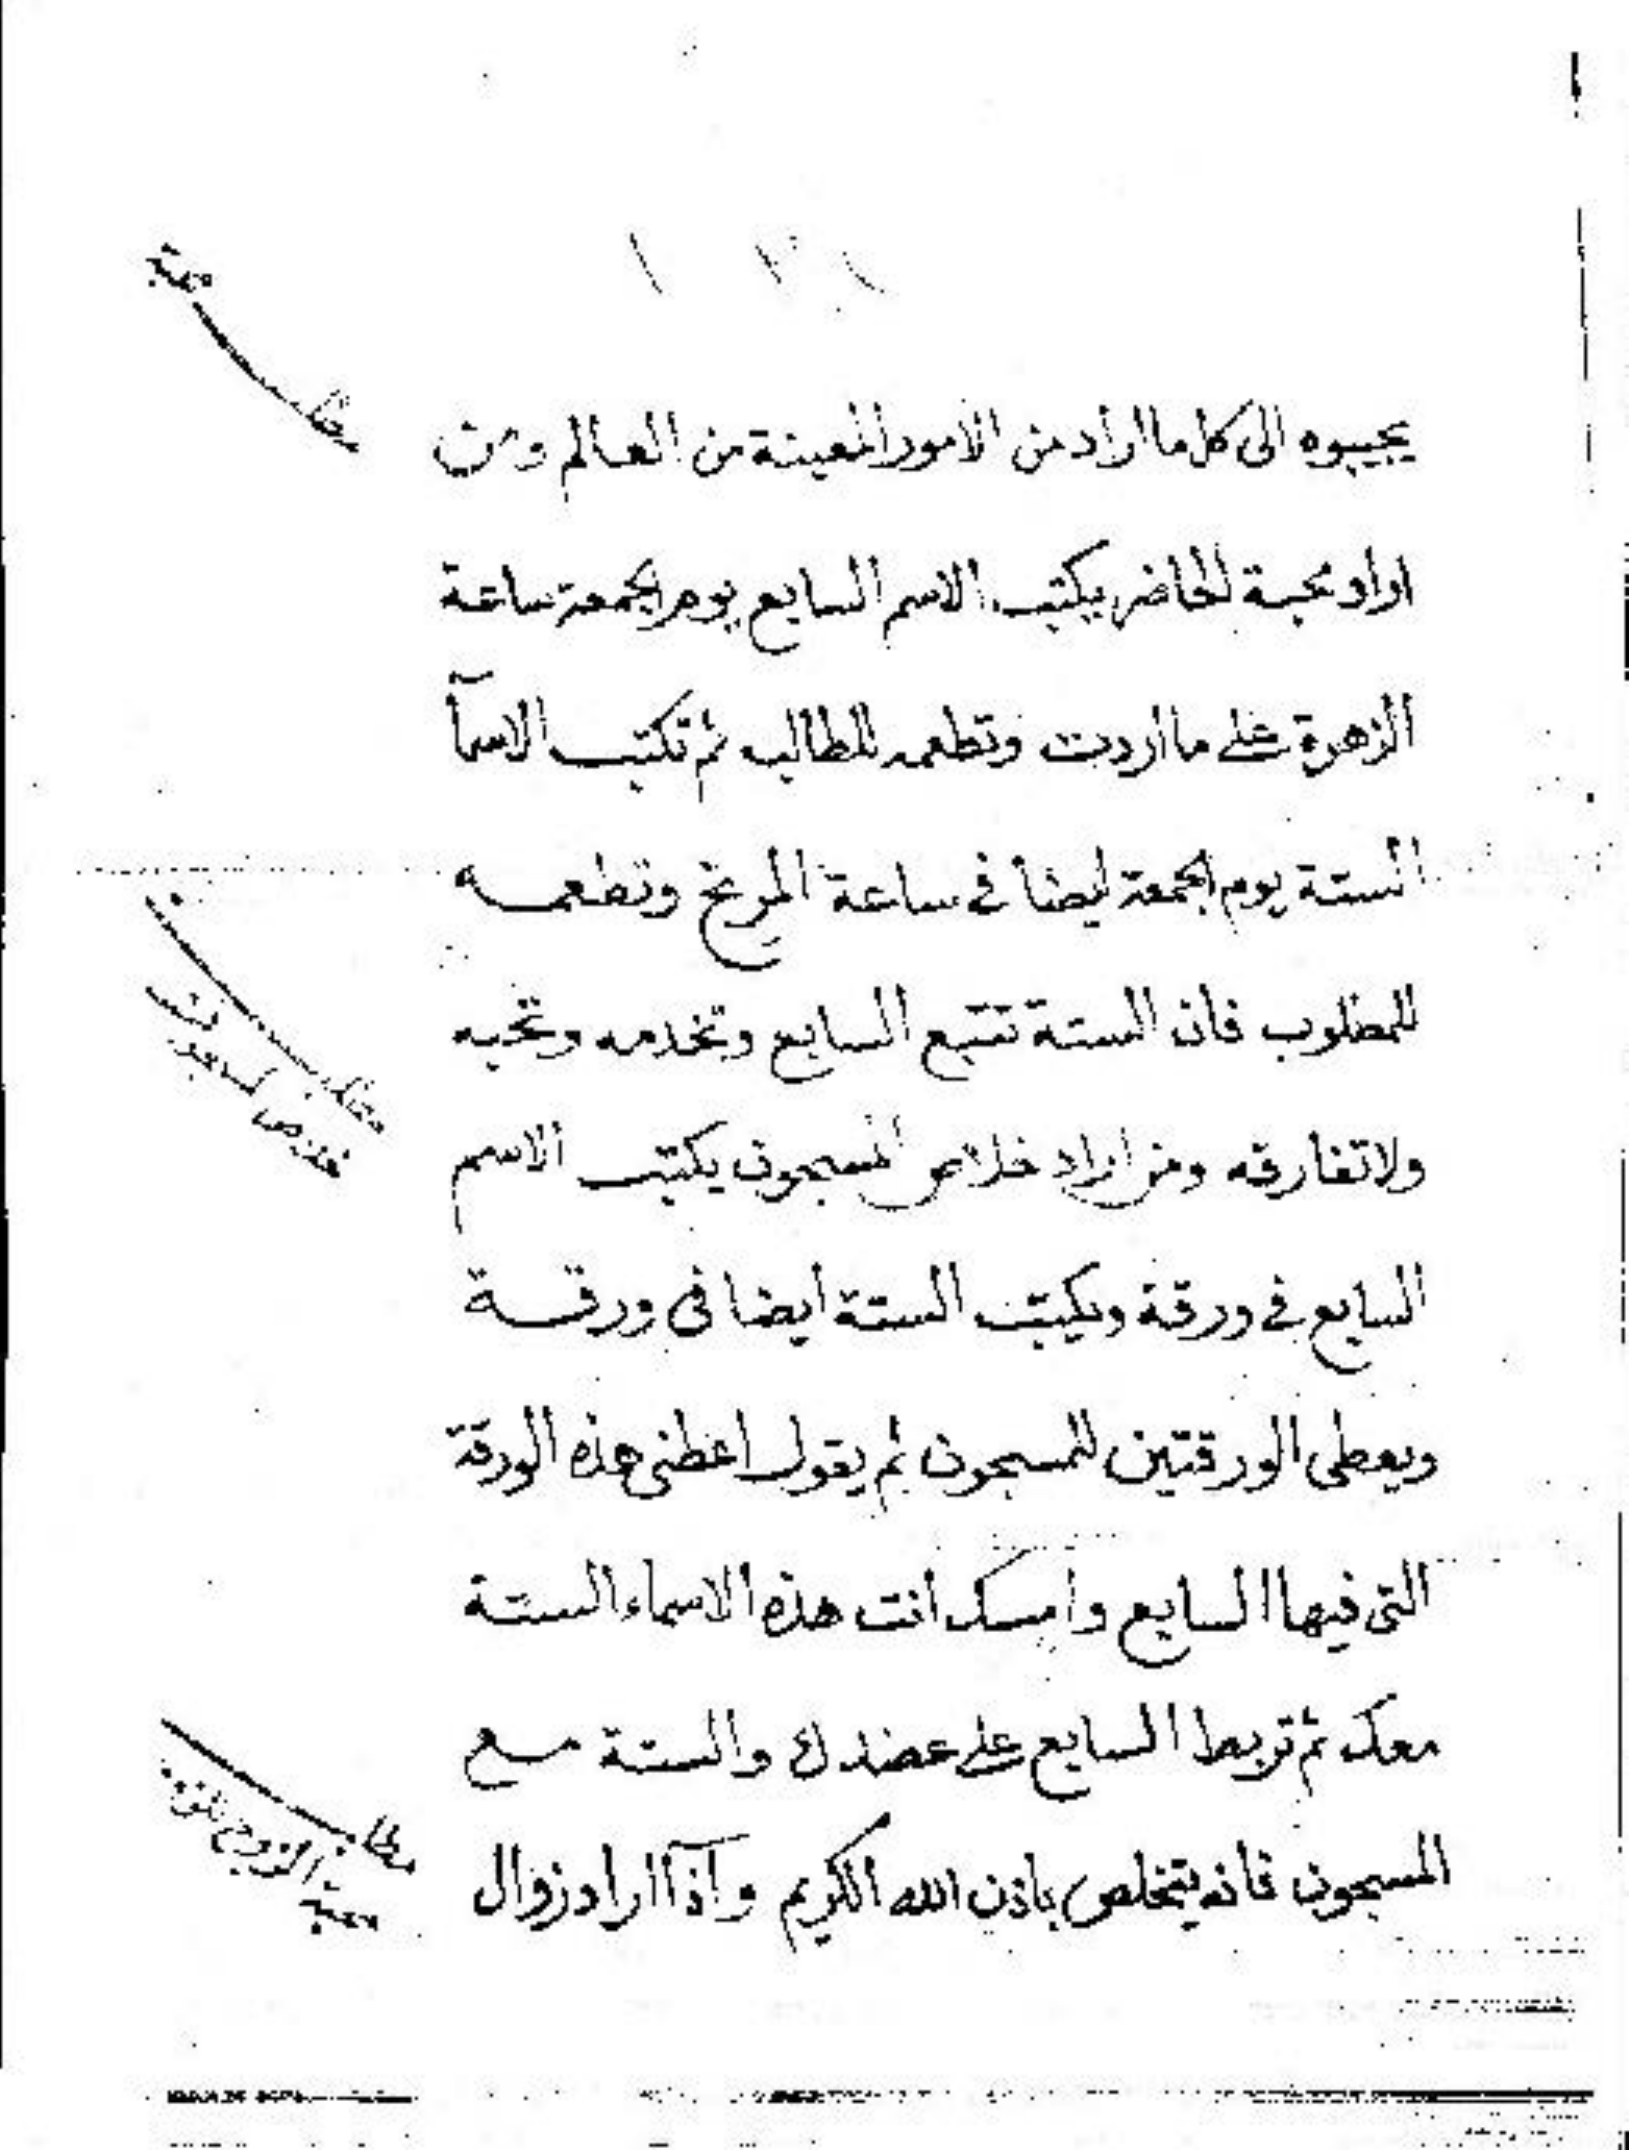 يجيبوه الى كل ما اراد من الامور المعينة من العالم ومن
اراد محبة لحاضر يكتب الاسم السابع يوم الجمعة ساعة
الزهرة على ما اردت وتطعمه للطالب ثم تكتب الاسمآ
الستة يوم الجمعة ايضا في ساعة المريخ وتطعمه
للمطلوب فان الستة تتبع السابع وتخدمه وتحبه
ولا تفارقه ومن اراد خلاص المسجون يكتب الاسم
السابع في ورقة ويكتب الستة ايضا في ورقة
ويعطى الورقتين للمسجون ثم يقول اعطنى هذه الورقة
التى فيها السابع وامسك انت هذه الاسماء الستة
معك ثم تربط السابع على عضدك والستة مع
المسجون فانه يتخلص باذن الله الكريم واذآ اراد زوال
مطلب
محبة
مطلب
خلاص المسجون
مطلب
محبة الزوج